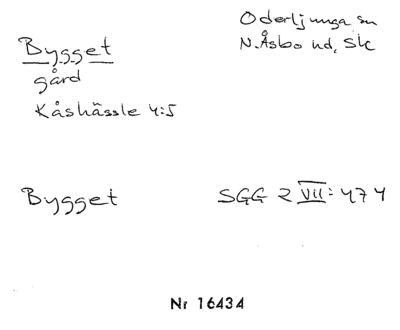 Oderljunga sn
N. Åsbo hd, Slc
Bygget
gård
Kåshässle 4:5
Bygget SGG 2 VII: 474
Nr 16434